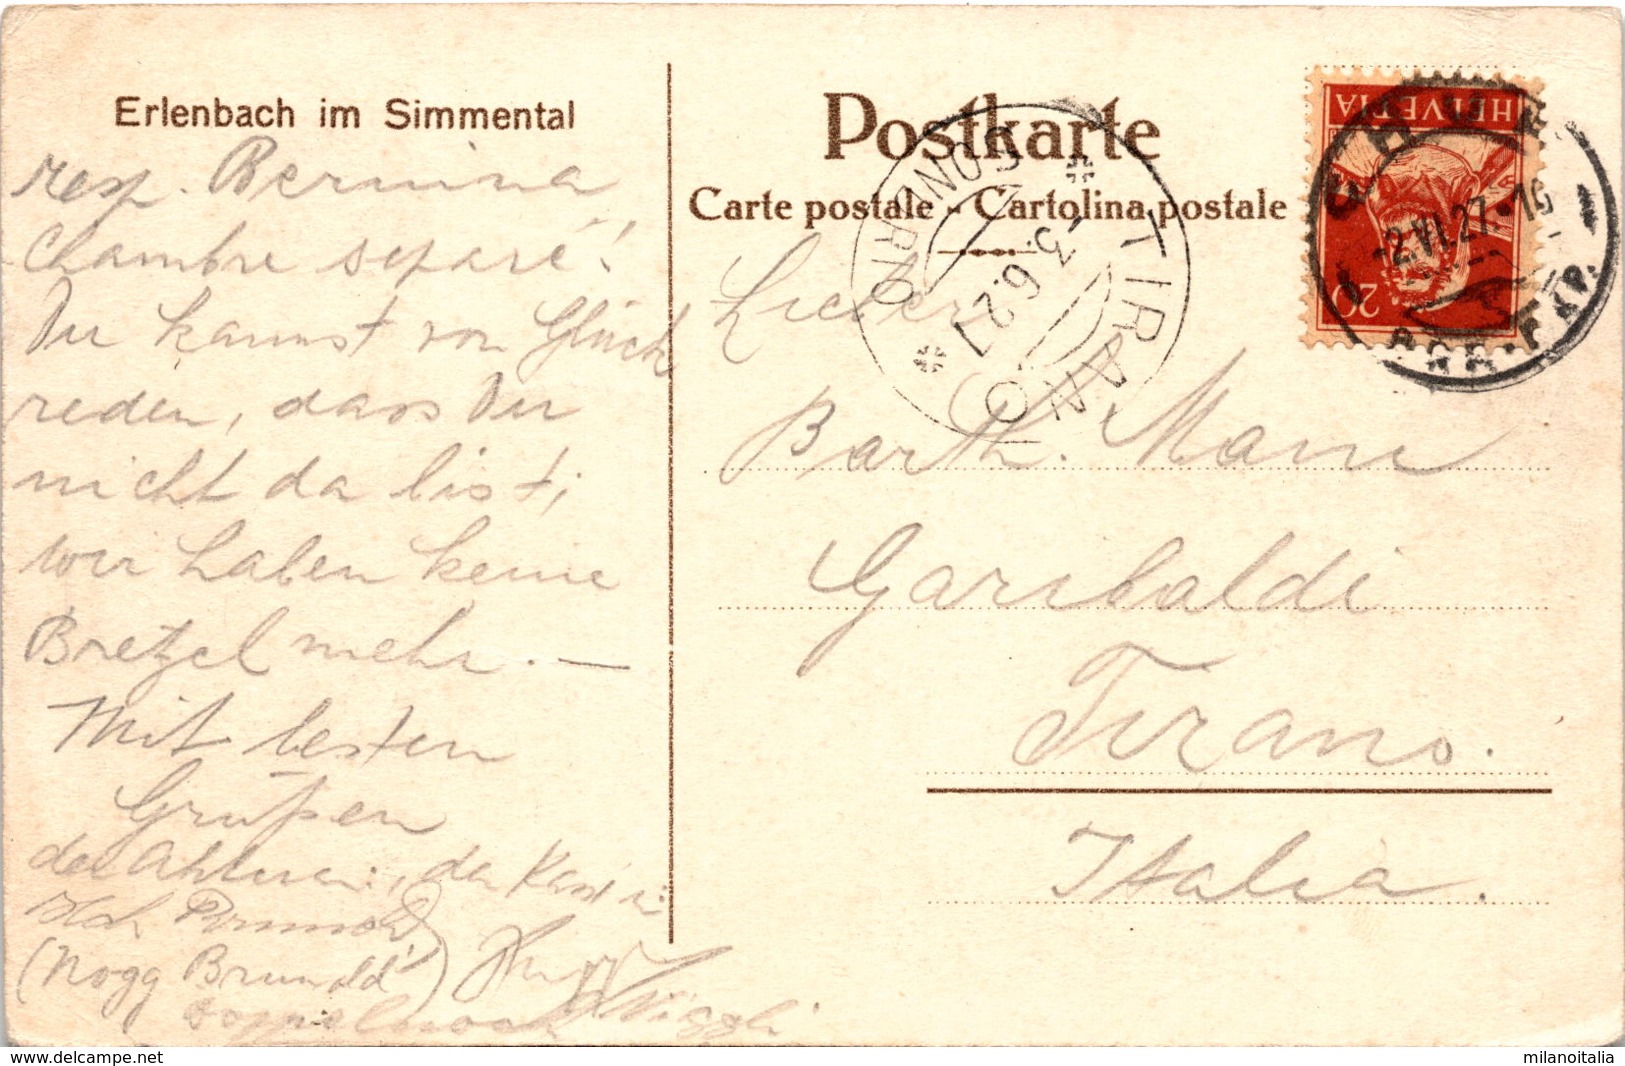 Erlenbach im Simmental
resp. Bernina
Chambre separé!
Du kannst von Glück
reden, dass Du
nicht da bist;
wir haben keine
Bretzel mehr. —
Mit besten
Grüßen
der
(Nogg Brunold)
Postkarte
Carte postale - Cartolina postale
Lieber
Barth. Mani
Garibaldi
Tirano.
Italia.
TIRANO
SONDRIO
3.6.27
HELVETIA
20
-2.VI.27.
delcampe.net
milanoitalia